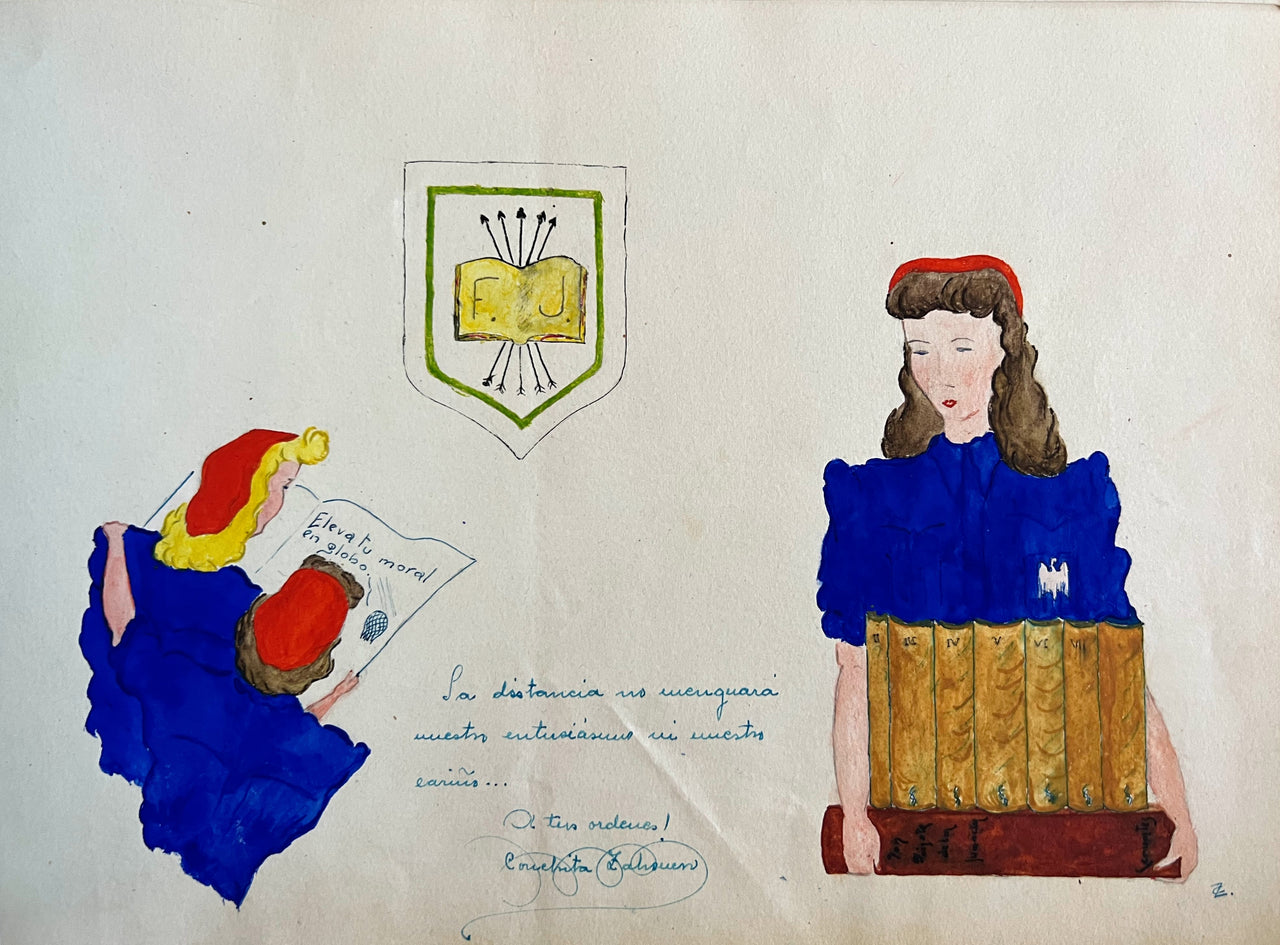 F. J.
Eleva tu moral
en globo.
La distancia no menguará
nuestro entusiásmo ni nuestro
cariño...
A tus ordenes!
Conchita
II III IV V VI VII
Don
Quijote
de la
Mancha
Cervantes